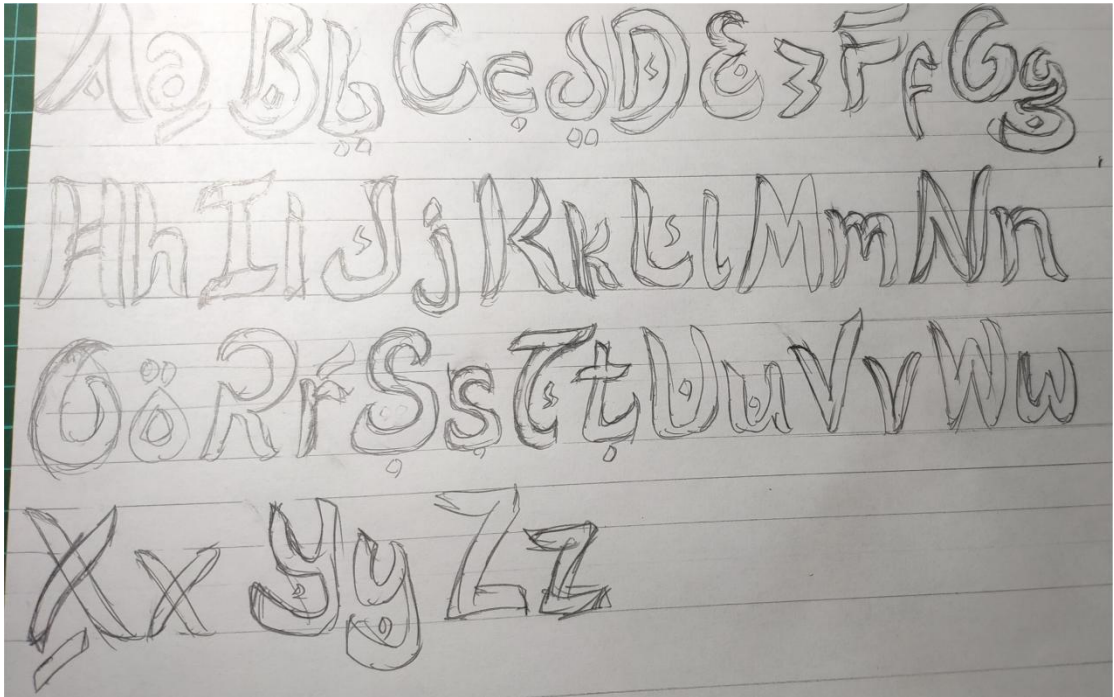 Aa Bb Cc dD Ɛ3 Ff Gg
Hh Ii Jj Kk Ll Mm Nn
Oö Rr Ṣṣ Tṭ Uu Vv Ww
Xx Yy Zz